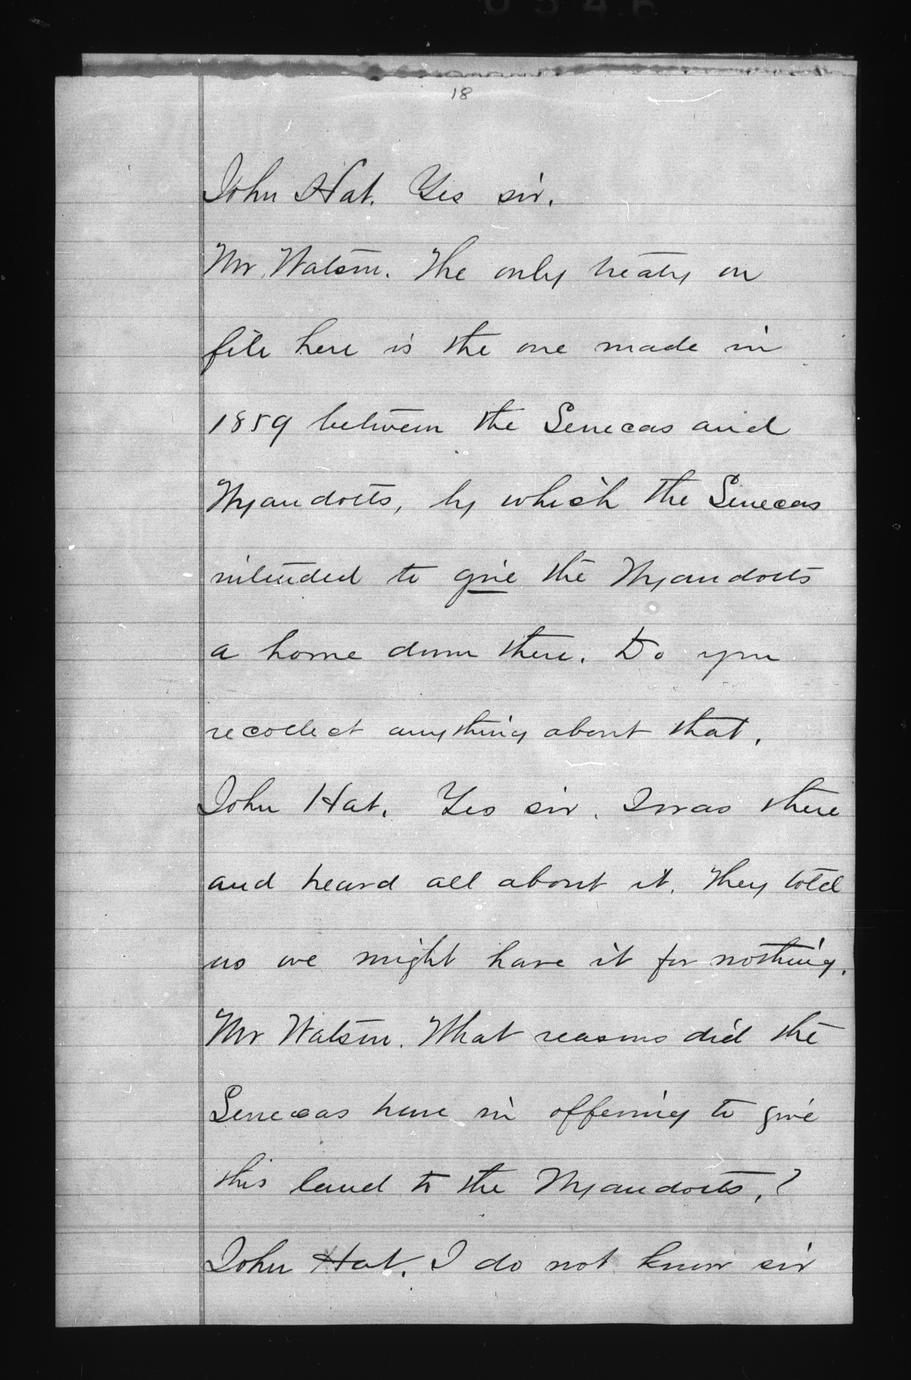 18
John Hat. Yes sir.
Mr. Watson. The only treaty on
file here is the one made in
1859 between the Senecas and
Wyandotts, by which the Senecas
intended to give the Wyandotts
a home down there. Do you
recollect anything about that.
John Hat. Yes sir. I was there
and heard all about it. They told
us we might have it for nothing.
Mr Watson. What reasons did the
Senecas have in offering to give
this land to the Wyandotts.?
John Hat. I do not know sir